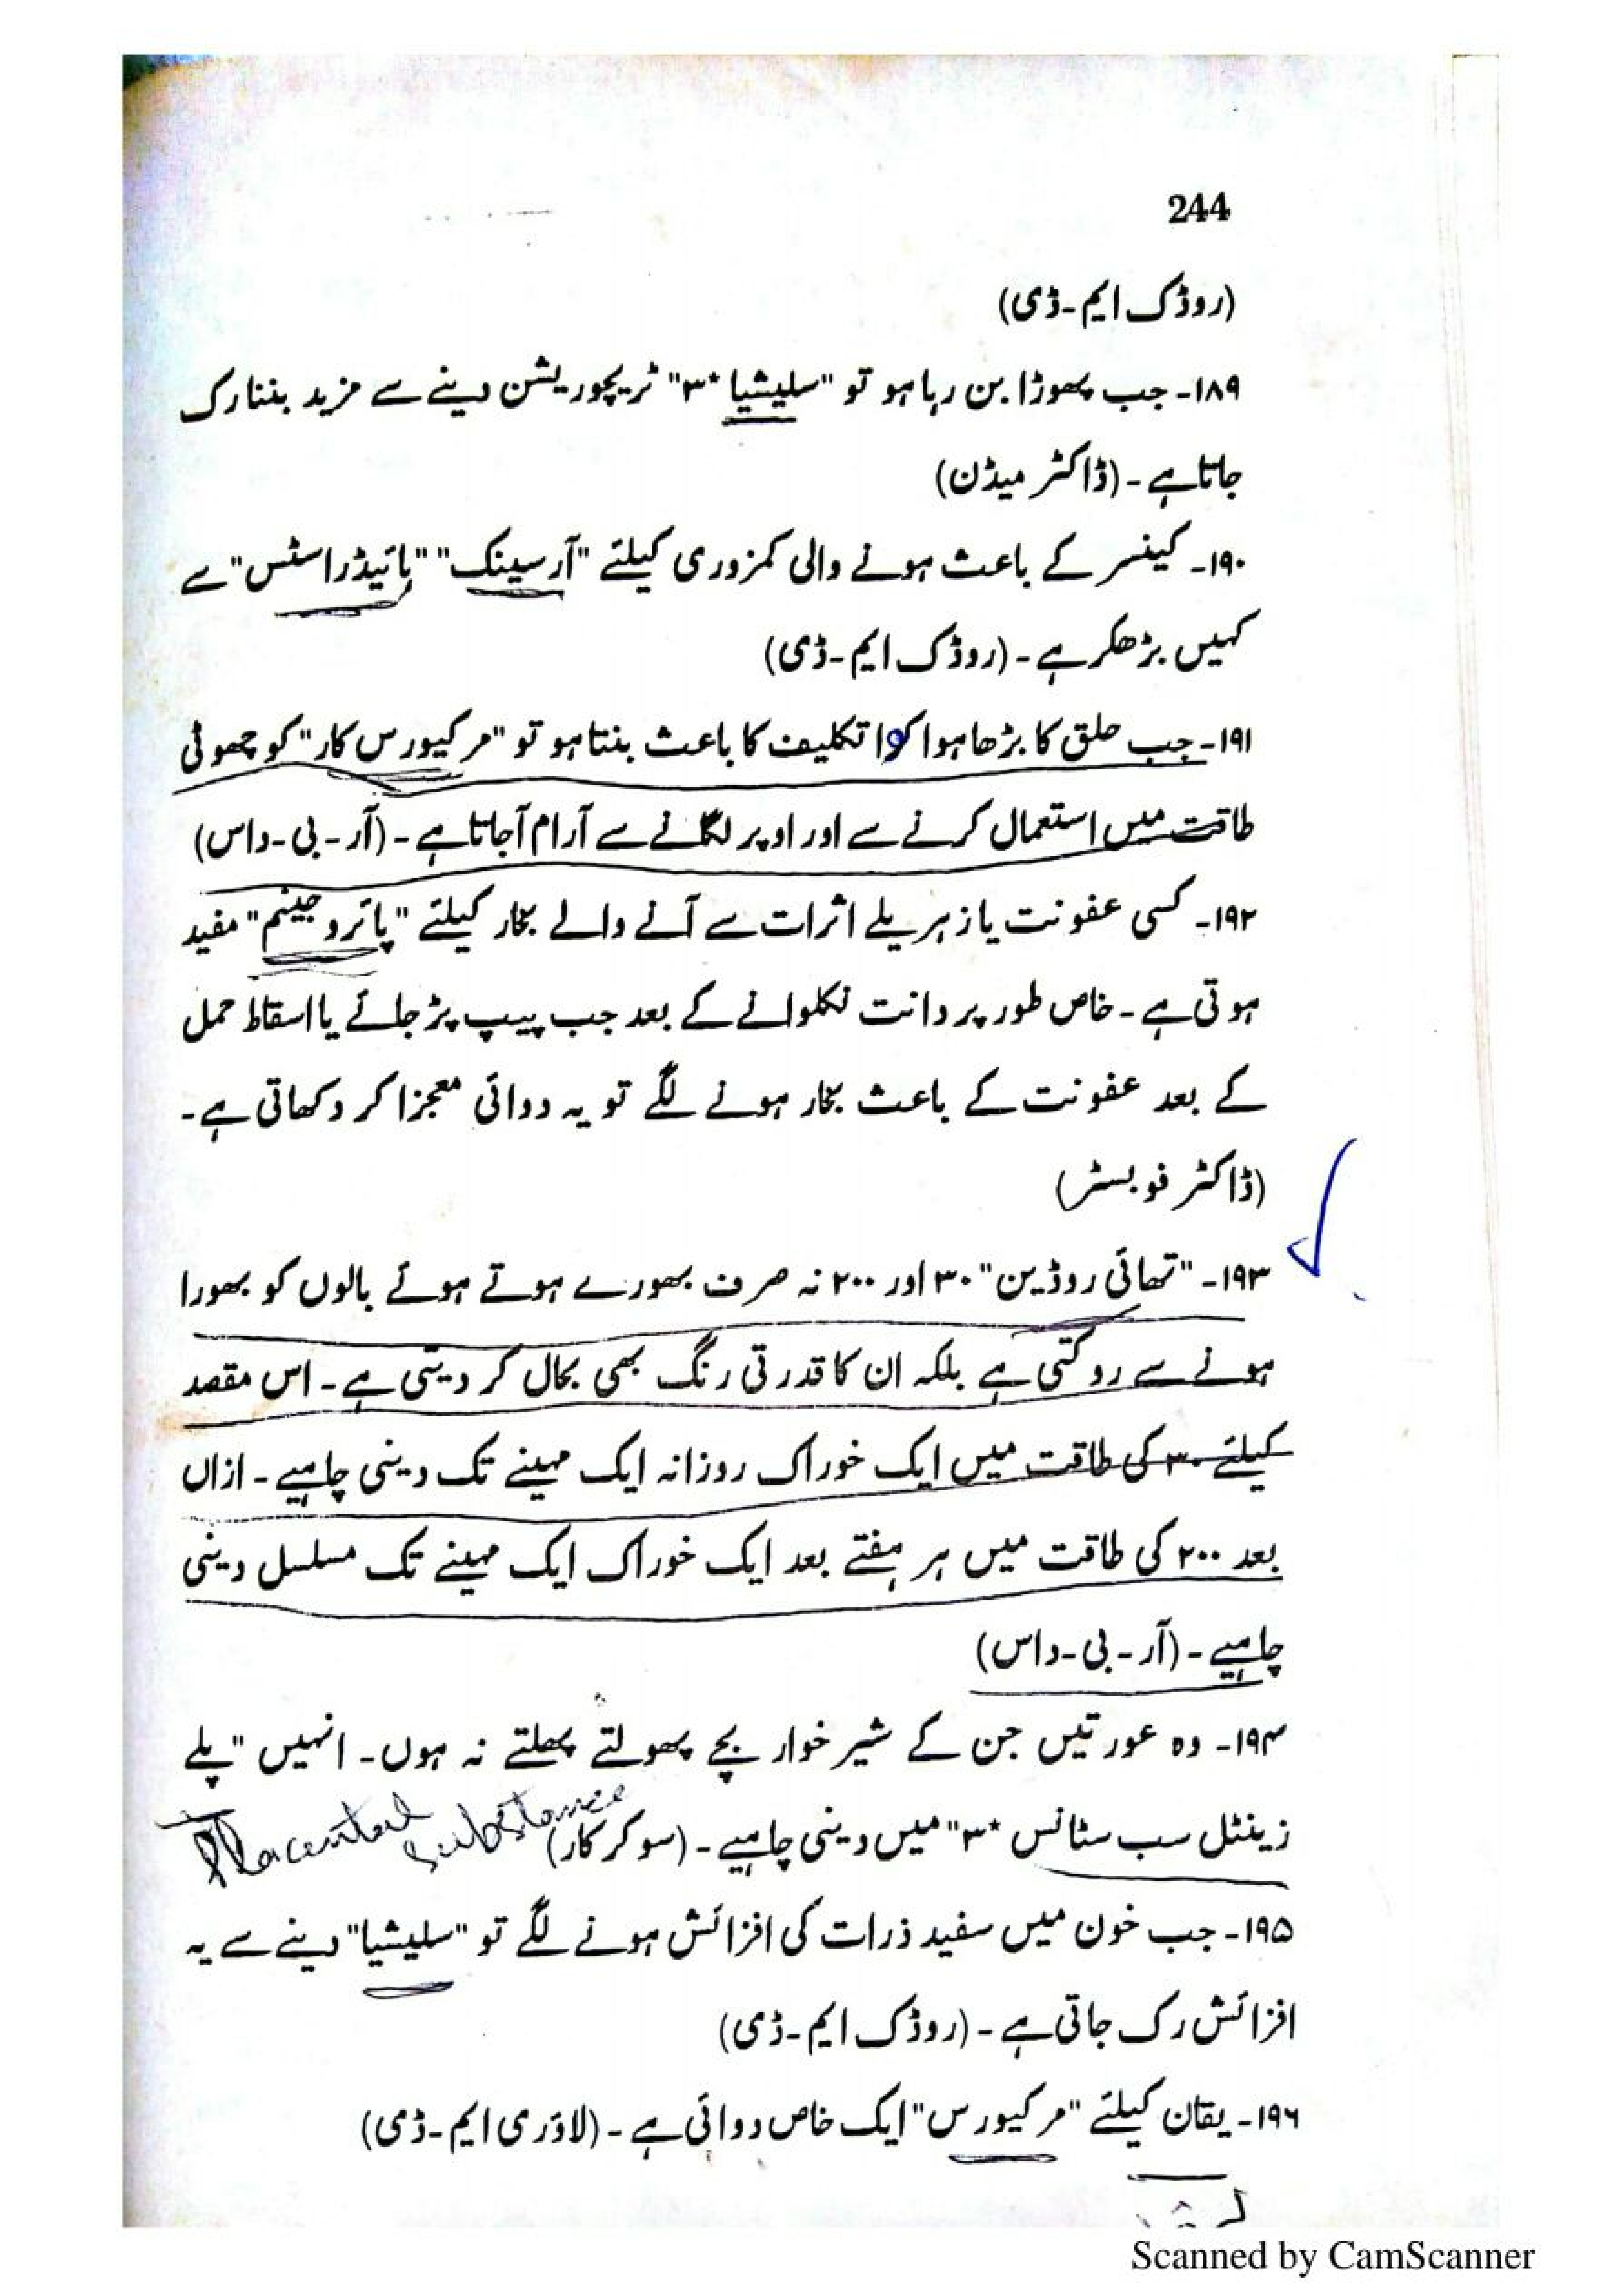 244
(روڈک ایم-ڈی)
۱۸۹- جب پھوڑا بن رہا ہو تو "سلیشیا *۳" ٹریچوریشن دینے سے مزید بننا رک
جاتا ہے - (ڈاکٹر میڈن)
۱۹۰- کینسر کے باعث ہونے والی کمزوری کیلئے "آرسینک" "ہائیڈراسٹس" سے
کہیں بڑھکر ہے - (روڈک ایم-ڈی)
۱۹۱- جب حلق کا بڑھا ہوا کوا تکلیف کا باعث بنتا ہو تو "مرکیورس کار" کو چھوٹی
طاقت میں استعمال کرنے سے اور اوپر لگانے سے آرام آجاتا ہے - (آر-بی-داس)
۱۹۲- کسی عفونت یا زہریلے اثرات سے آنے والے بخار کیلئے "پائروجینم" مفید
ہوتی ہے - خاص طور پر دانت نکلوانے کے بعد جب پیپ پڑ جائے یا اسقاط حمل
کے بعد عفونت کے باعث بخار ہونے لگے تو یہ دوائی معجزا کر دکھاتی ہے -
(ڈاکٹر فوبسٹر)
۱۹۳- "تھائی روڈین" ۳۰ اور ۲۰۰ نہ صرف بھورے ہوتے ہوئے بالوں کو بھورا
ہونے سے روکتی ہے بلکہ ان کا قدرتی رنگ بھی بحال کر دیتی ہے - اس مقصد
کیلئے ۳۰ کی طاقت میں ایک خوراک روزانہ ایک مہینے تک دینی چاہیے - ازاں
بعد ۲۰۰ کی طاقت میں ہر ہفتے بعد ایک خوراک ایک مہینے تک مسلسل دینی
چاہیے - (آر-بی-داس)
۱۹۴- وہ عورتیں جن کے شیر خوار بچے پھولتے پھلتے نہ ہوں - انہیں "پلے
زینٹل سب سٹانس *۳" میں دینی چاہیے - (سوکر کار)
Placental Substance
۱۹۵- جب خون میں سفید ذرات کی افزائش ہونے لگے تو "سلیشیا" دینے سے یہ
افزائش رک جاتی ہے - (روڈک ایم-ڈی)
۱۹۶- یقان کیلئے "مرکیورس" ایک خاص دوائی ہے - (لاؤری ایم-ڈی)
Scanned by CamScanner